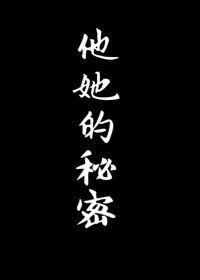 他她的秘密